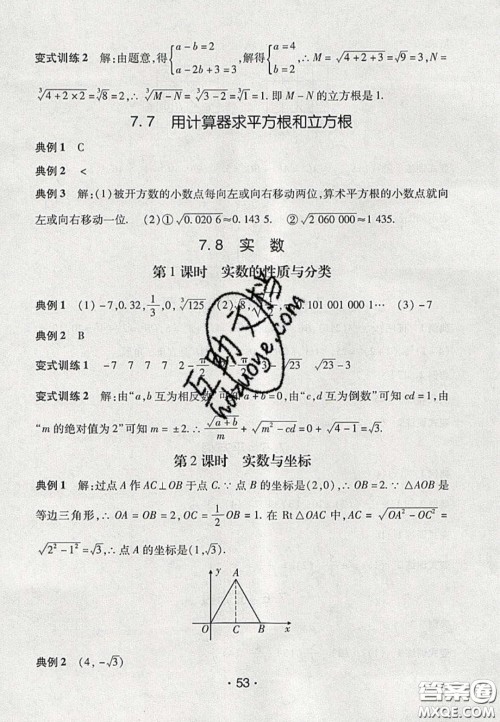 变式训练2 解:由题意,得{a-b=2 a-2b+3=3,解得{a=4, b=2,∴M=√(4+2+3)=√9=3,N=
∛(4+2×2)=∛8=2,∴∛(M-N)=∛(3-2)=∛1=1.即M-N的立方根是1.
7.7 用计算器求平方根和立方根
典例1 C
典例2 <
典例3 解:(1)被开方数的小数点每向左或向右移动两位,算术平方根的小数点就向
左或向右移动一位. (2)①√0.020 6≈0.143 5. ②√2 060 000≈1 435.
7.8 实 数
第1课时 实数的性质与分类
典例1 (1)-7,0.32,1/3,0,∛125 (2)√8,101 001 000 1… (3)-7
典例2 B
变式训练1 -7 7 7 7 2 -π/2 √23-3 √23-3
变式训练2 解:由“a,b互为相反数”可知a+b=0,由“c,d互为倒数”可知cd=1,由
“m的绝对值为2”可知m=±2.∴√(a+b)/m+√(m²-cd)=0+√(4-1)=√3.
第2课时 实数与坐标
典例1 解:过点A作AC⊥OB于点C.∵点B的坐标是(2,0),∴OB=2.∵△AOB是
等边三角形,∴OA=OB=2,OC=1/2OB=1.在Rt△OAC中,AC=√(OA²-OC²)
=√(2²-1²)=√3,∴点A的坐标是(1,√3).
y
A
O C B x
典例2 (4,-√3)
·53·
互助文档
huzuoye.com
答案圈
MXQE.COM